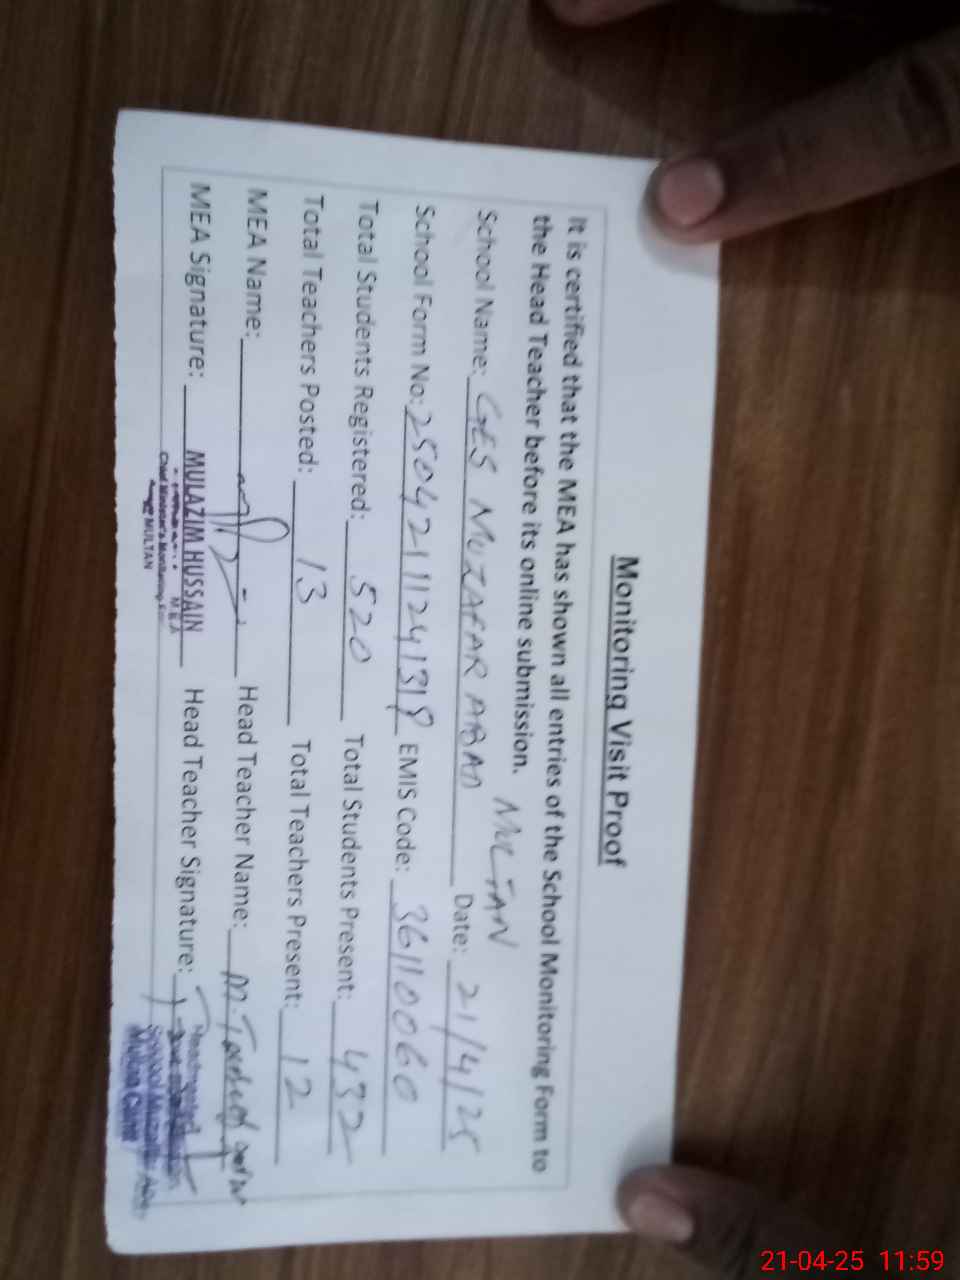 Monitoring Visit Proof
It is certified that the MEA has shown all entries of the School Monitoring Form to
the Head Teacher before its online submission.
MULTAN
School Name: GES MUZAFAR ABAD Date: 21/4/25
School Form No: 25042111241319 EMIS Code: 36110060
Total Students Registered: 520 Total Students Present: 432
Total Teachers Posted: 13 Total Teachers Present: 12
MEA Name: Head Teacher Name: M.
MEA Signature: MULAZIM HUSSAIN Head Teacher Signature:
MEA
Chief Minister's Monitoring
MULTAN
School
Multan Cantt
21-04-25 11:59